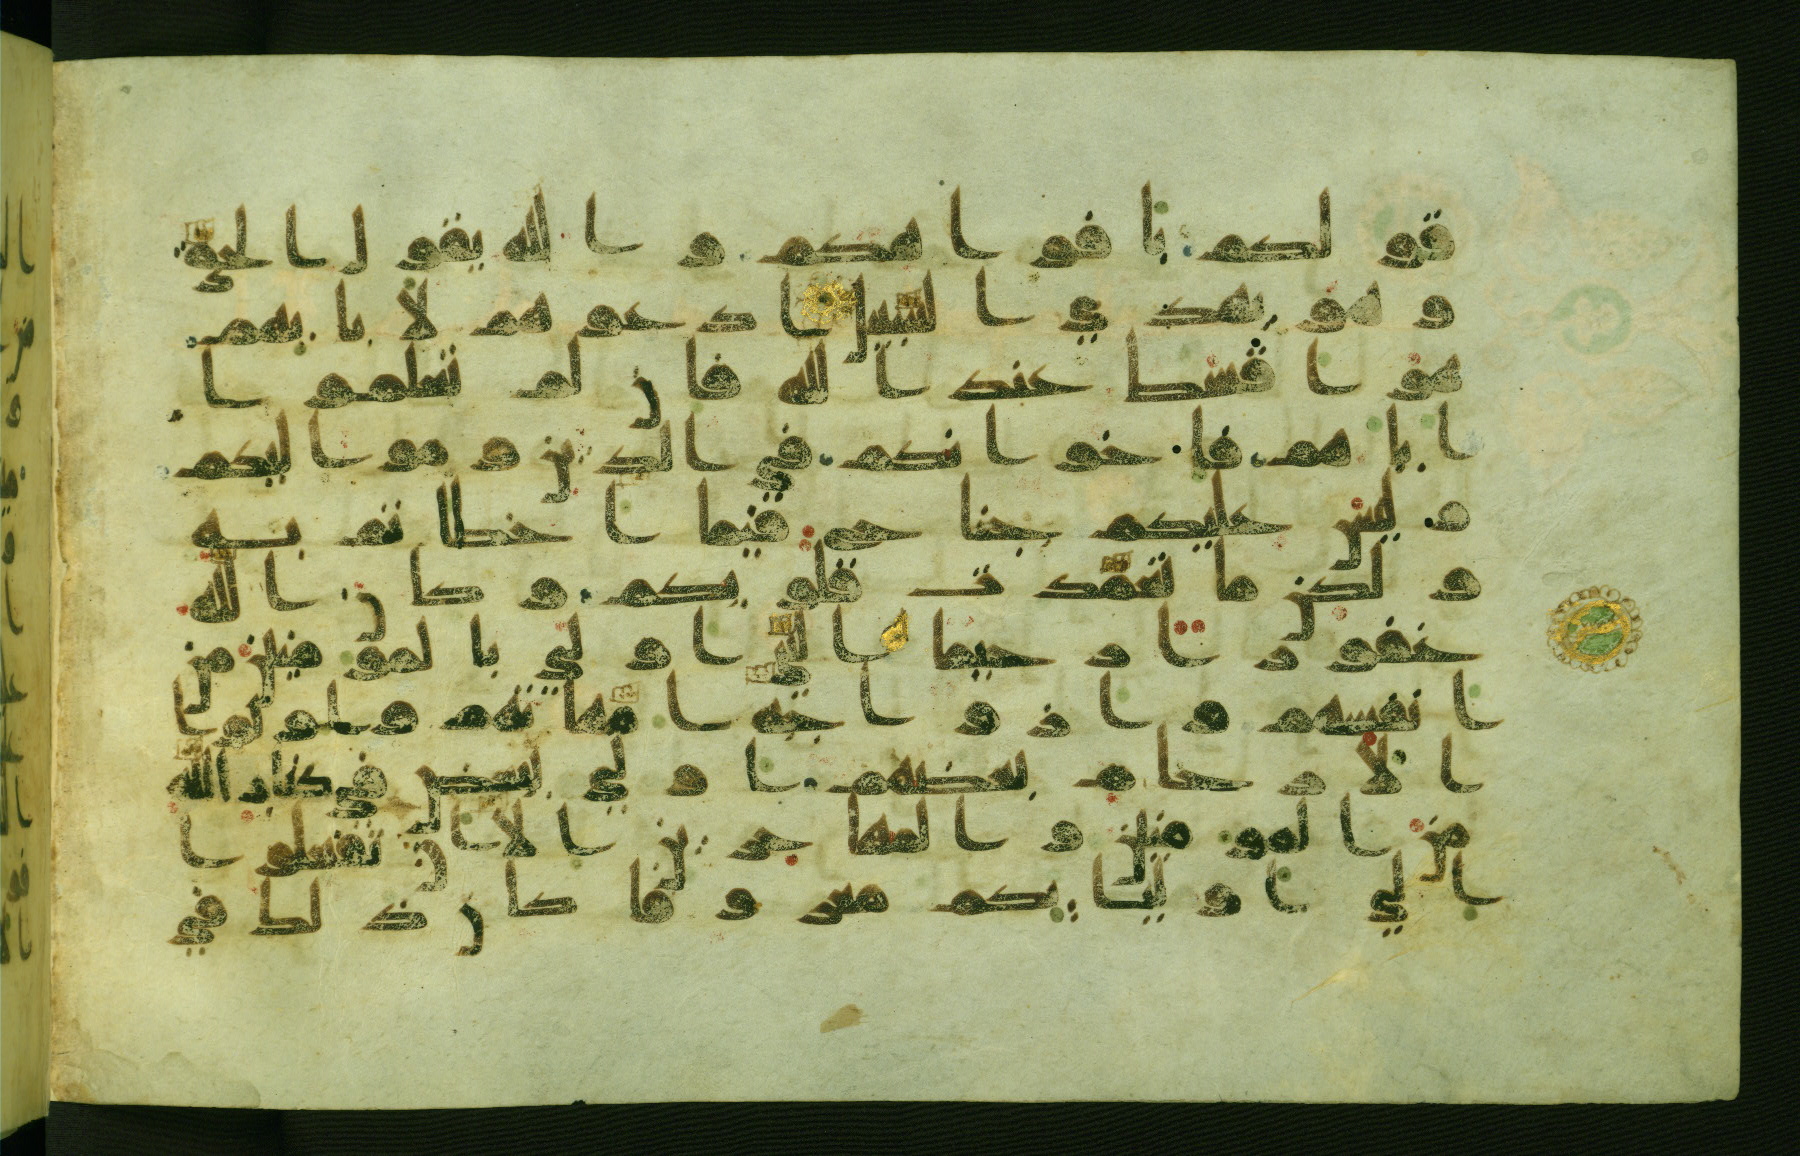 قولكم بافواهكم والله يقول الحق
وهو يهدي السبيل ادعوهم لابايهم
هو اقسط عند الله فان لم تعلموا
اباهم فاخوانكم في الدين ومواليكم
وليس عليكم جناح فيما اخطاتم به
ولكن ما تعمدت قلوبكم وكان الله
غفورا رحيما النبي اولى بالمومنين من
انفسهم وازواجه امهاتهم واولوا
الارحام بعضهم اولى ببعض في كتاب الله
من المومنين والمهاجرين الا ان تفعلوا
الى اوليايكم معروفا كان ذلك في